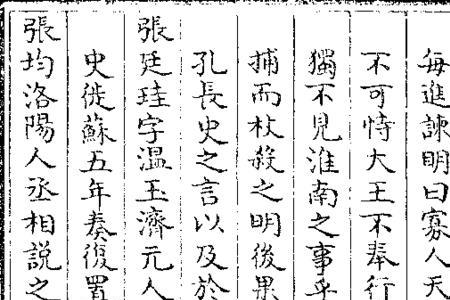 每進諫明曰寡人天
不可恃大王不奉行
獨不見淮南之事乎
捕而杖殺之明後果
孔長史之言以及於
張廷珪字温玉濟元人
史徙蘇五年奏復置
張均洛陽人丞相說之